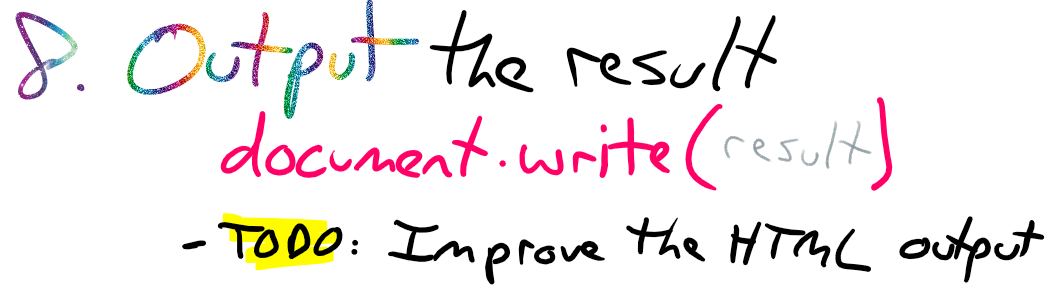 8. Output the result
document.write(result)
- TODO: Improve the HTML output